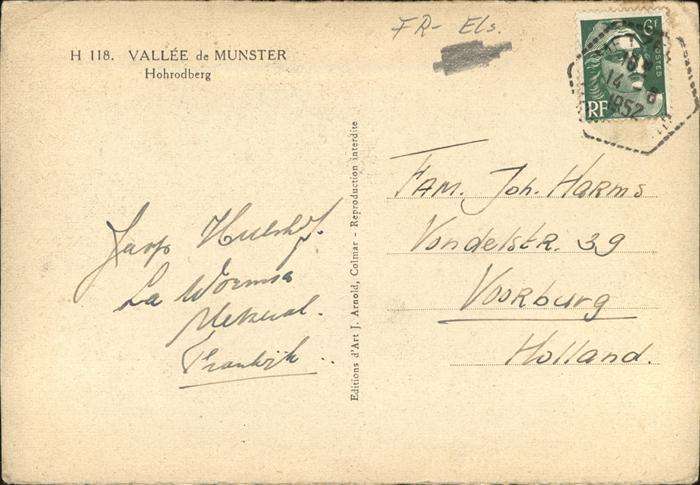 FR- Els.
H 118. VALLÉE de MUNSTER
Hohrodberg
6F
POSTES
RF
18
14 - 8
1952
Editions d'Art J. Arnold, Colmar - Reproduction interdite
Jaap Hulshof.
La Wormsa
Metzeral.
Frankrijk..
FAM. Joh. HARMS
Vondelstr. 39
Voorburg
Holland.